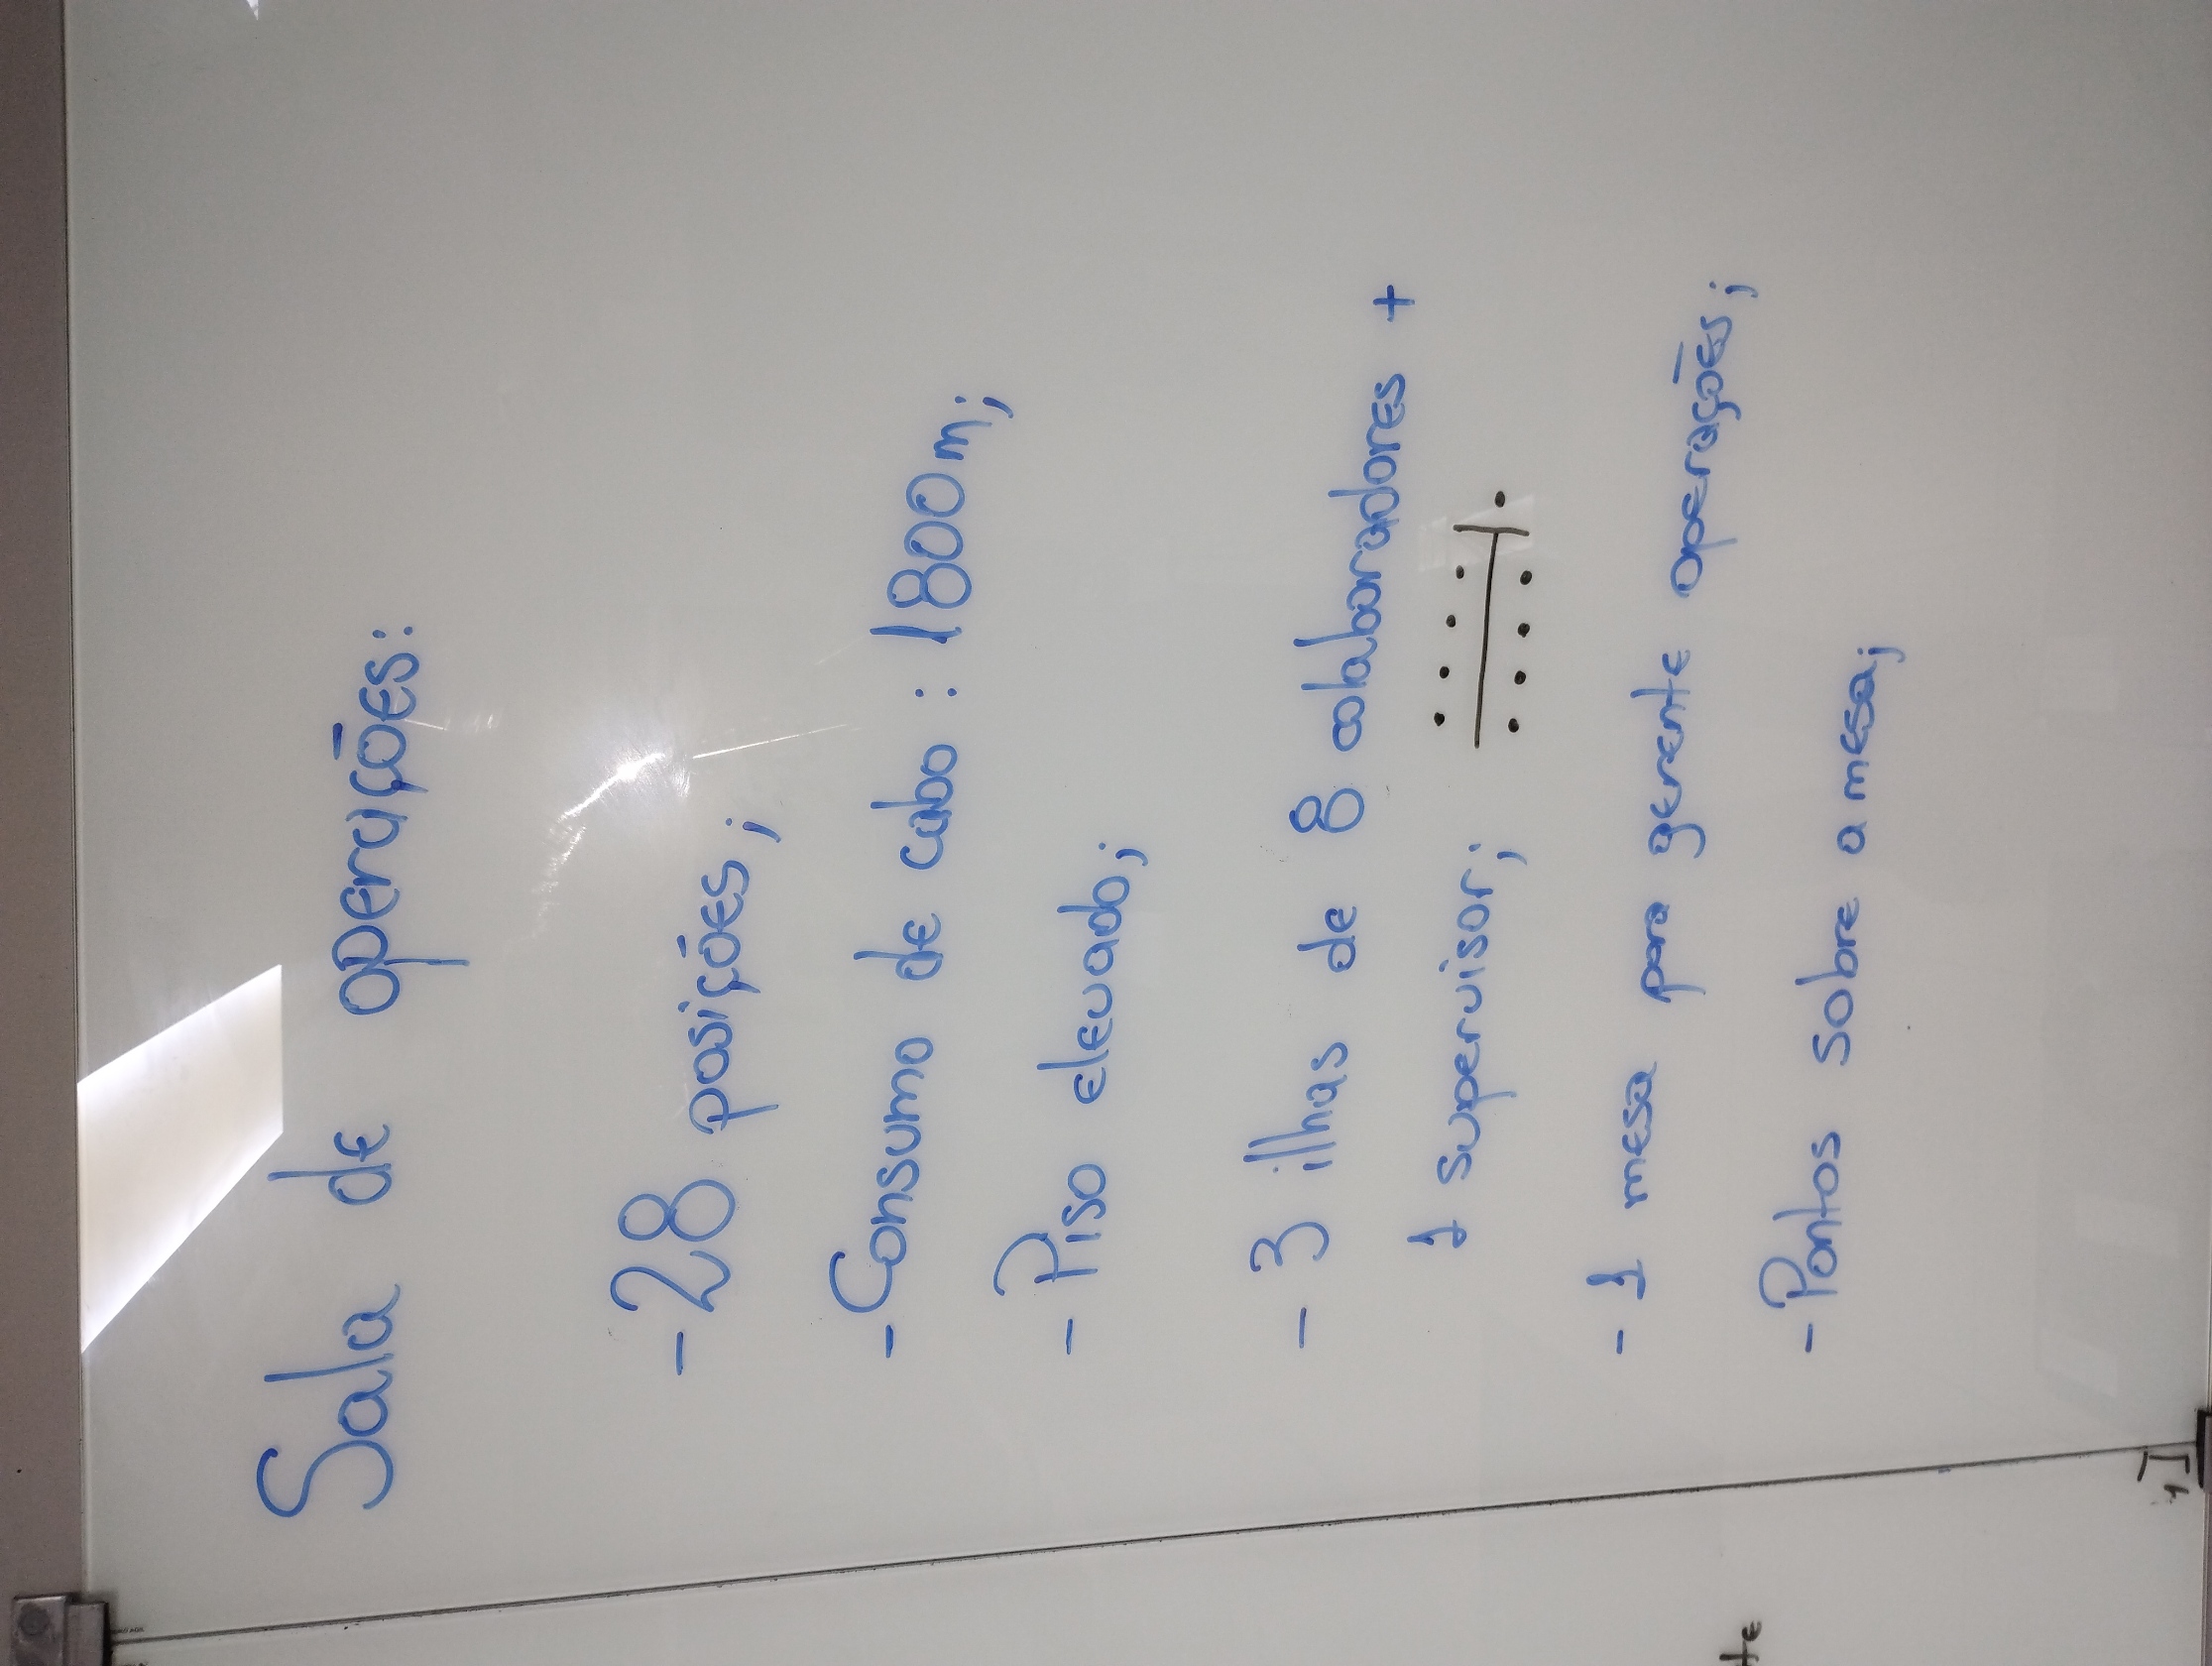 Sala de operações:
- 28 posições;
- Consumo de cabo : 1800m;
- Piso elevado;
- 3 ilhas de 8 colaboradores +
1 supervisor;
- 1 mesa para gerente operações;
- Pontos sobre a mesa;
te